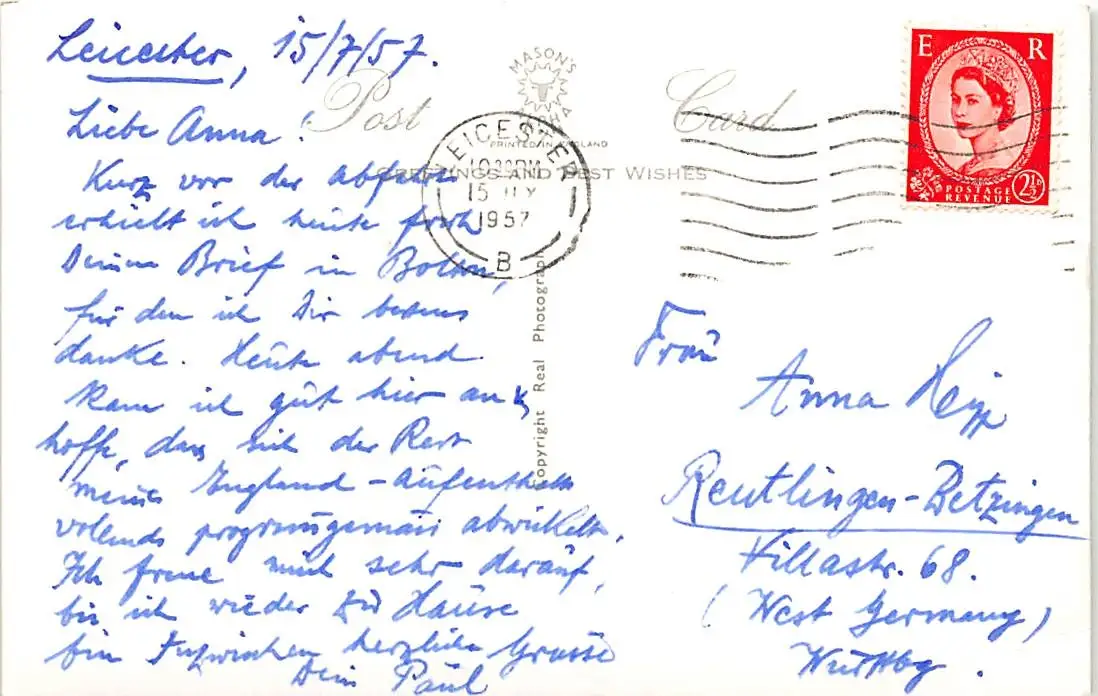 Leicester, 15/7/57.
Liebe Anna!
Kurz vor der Abfahrt
erhielt ich heute früh
Deinen Brief in Bolton,
für den ich Dir bestens
danke. Heute abend
kam ich gut hier an &
hoffe, dass sich der Rest
meines England-Aufenthalts
vollends programmgemäss abwickelt.
Ich freue mich sehr darauf,
bis ich wieder zu Hause
bin. Inzwischen herzliche Grüsse
Dein Paul
Post Card
MASON'S
ALPHA
PRINTED IN ENGLAND
GREETINGS AND BEST WISHES
Copyright Real Photograph
LEICESTER
15 JLY
1957
B
E R
POSTAGE
REVENUE
2½D
Frau
Anna Hipp
Reutlingen-Betzingen
Villastr. 68.
(West Germany)
Württbg.